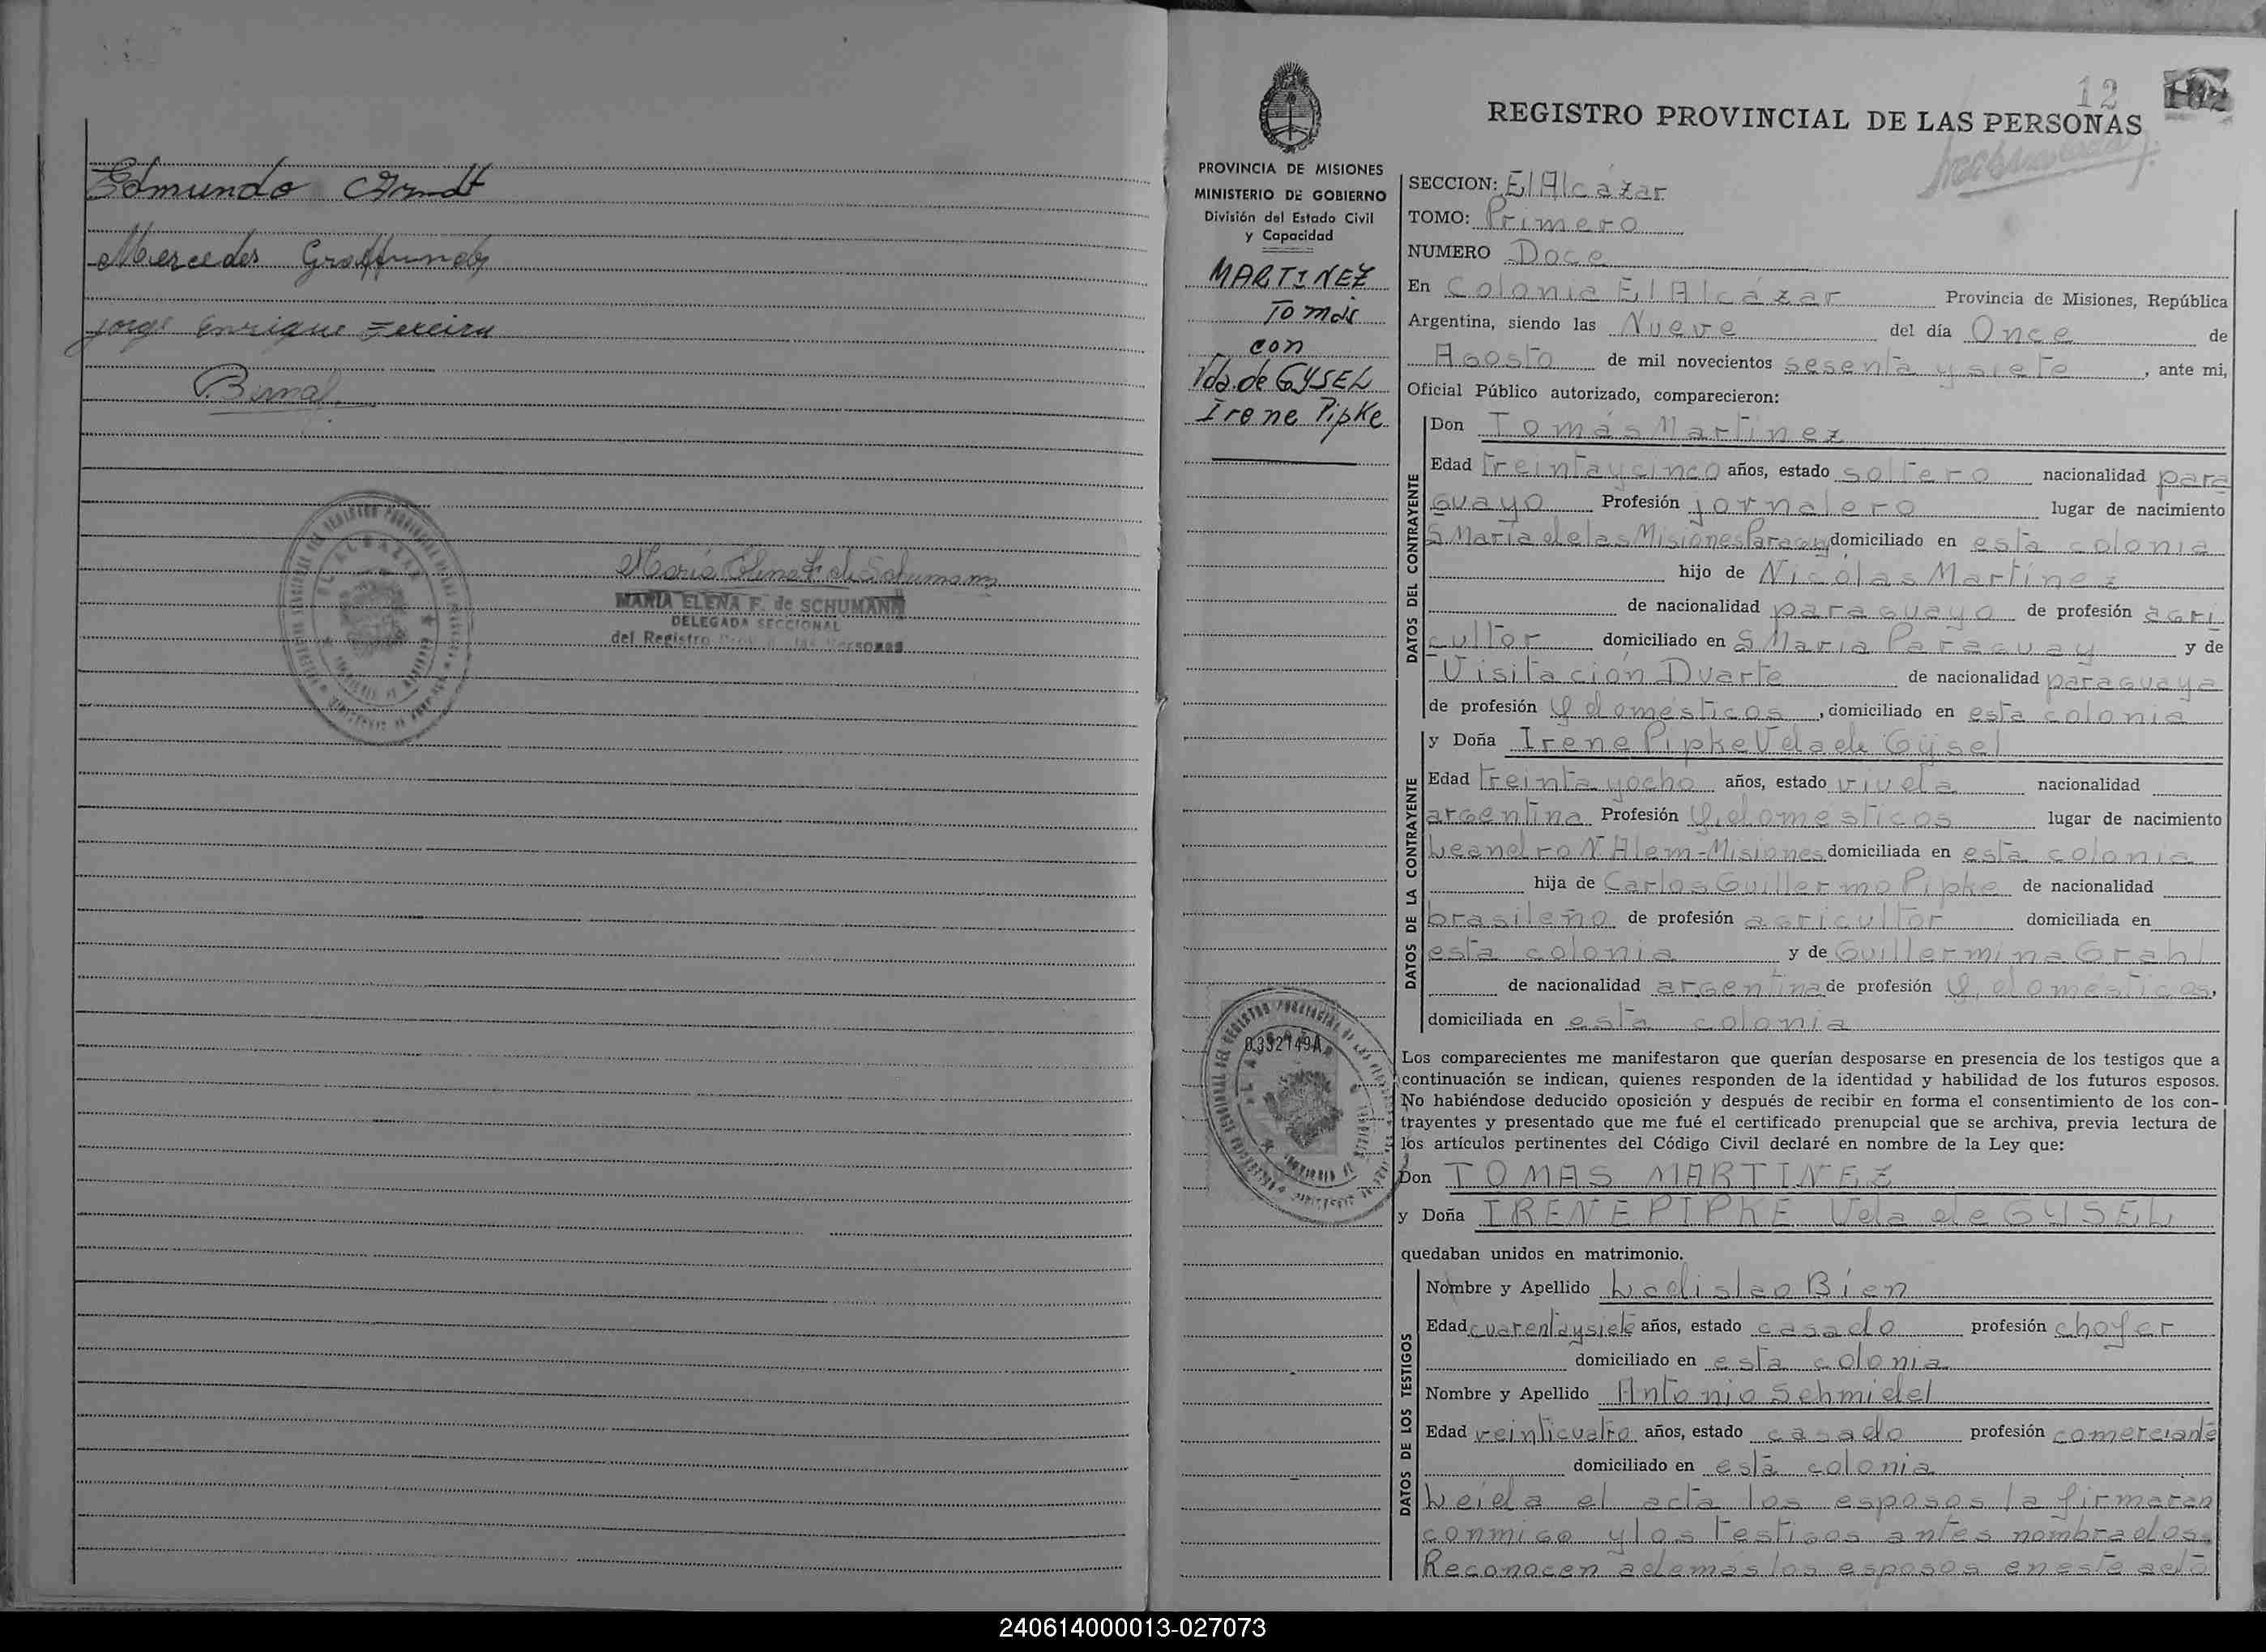 Edmundo Arndt
Mercedes Graffunder
Jorge Enrique Fereira
Bernal
EL ALCAZAR
María Elena F. de Schumann
MARIA ELENA F. de SCHUMANN
DELEGADA SECCIONAL
del Registro Prov. de las Personas
12
REGISTRO PROVINCIAL DE LAS PERSONAS
PROVINCIA DE MISIONES
MINISTERIO DE GOBIERNO
División del Estado Civil
y Capacidad
MARTINEZ
Tomás
con
Vda. de GYSEL
Irene Pipke
0.332149A
SECCION: El Alcázar
TOMO: Primero
NUMERO Doce
En Colonia El Alcázar Provincia de Misiones, República
Argentina, siendo las Nueve del día Once de
Agosto de mil novecientos sesenta y siete, ante mi,
Oficial Público autorizado, comparecieron:
DATOS DEL CONTRAYENTE
Don Tomás Martínez
Edad treinta y cinco años, estado soltero nacionalidad para
guayo Profesión jornalero lugar de nacimiento
S María de las Misiones Paraguay domiciliado en esta colonia
hijo de Nicolas Martínez
de nacionalidad paraguayo de profesión agri
cultor domiciliado en S María Paraguay y de
Visitación Duarte de nacionalidad paraguaya
de profesión Q domésticos, domiciliado en esta colonia
DATOS DE LA CONTRAYENTE
y Doña Irene Pipke Vda de Gysel
Edad treinta y ocho años, estado viuda nacionalidad
argentina Profesión Q. domésticos lugar de nacimiento
Leandro N Alem-Misiones domiciliada en esta colonia
hija de Carlos Guillermo Pipke de nacionalidad
brasileño de profesión agricultor domiciliada en
esta colonia y de Guillermina Grahl
de nacionalidad argentina de profesión Q. domésticos,
domiciliada en esta colonia
Los comparecientes me manifestaron que querían desposarse en presencia de los testigos que a
continuación se indican, quienes responden de la identidad y habilidad de los futuros esposos.
No habiéndose deducido oposición y después de recibir en forma el consentimiento de los con-
trayentes y presentado que me fué el certificado prenupcial que se archiva, previa lectura de
los artículos pertinentes del Código Civil declaré en nombre de la Ley que:
Don TOMAS MARTINEZ
y Doña IRENE PIPKE Vda de GYSEL
quedaban unidos en matrimonio.
DATOS DE LOS TESTIGOS
Nombre y Apellido Ladislao Bien
Edad cuarenta y siete años, estado casado profesión chofer
domiciliado en esta colonia
Nombre y Apellido Antonio Schmidel
Edad veinticuatro años, estado casado profesión comerciante
domiciliado en esta colonia
Leída el acta los esposos la firmaran
conmigo y los testigos antes nombrados.
Reconocen además los esposos en este acto
240614000013-027073